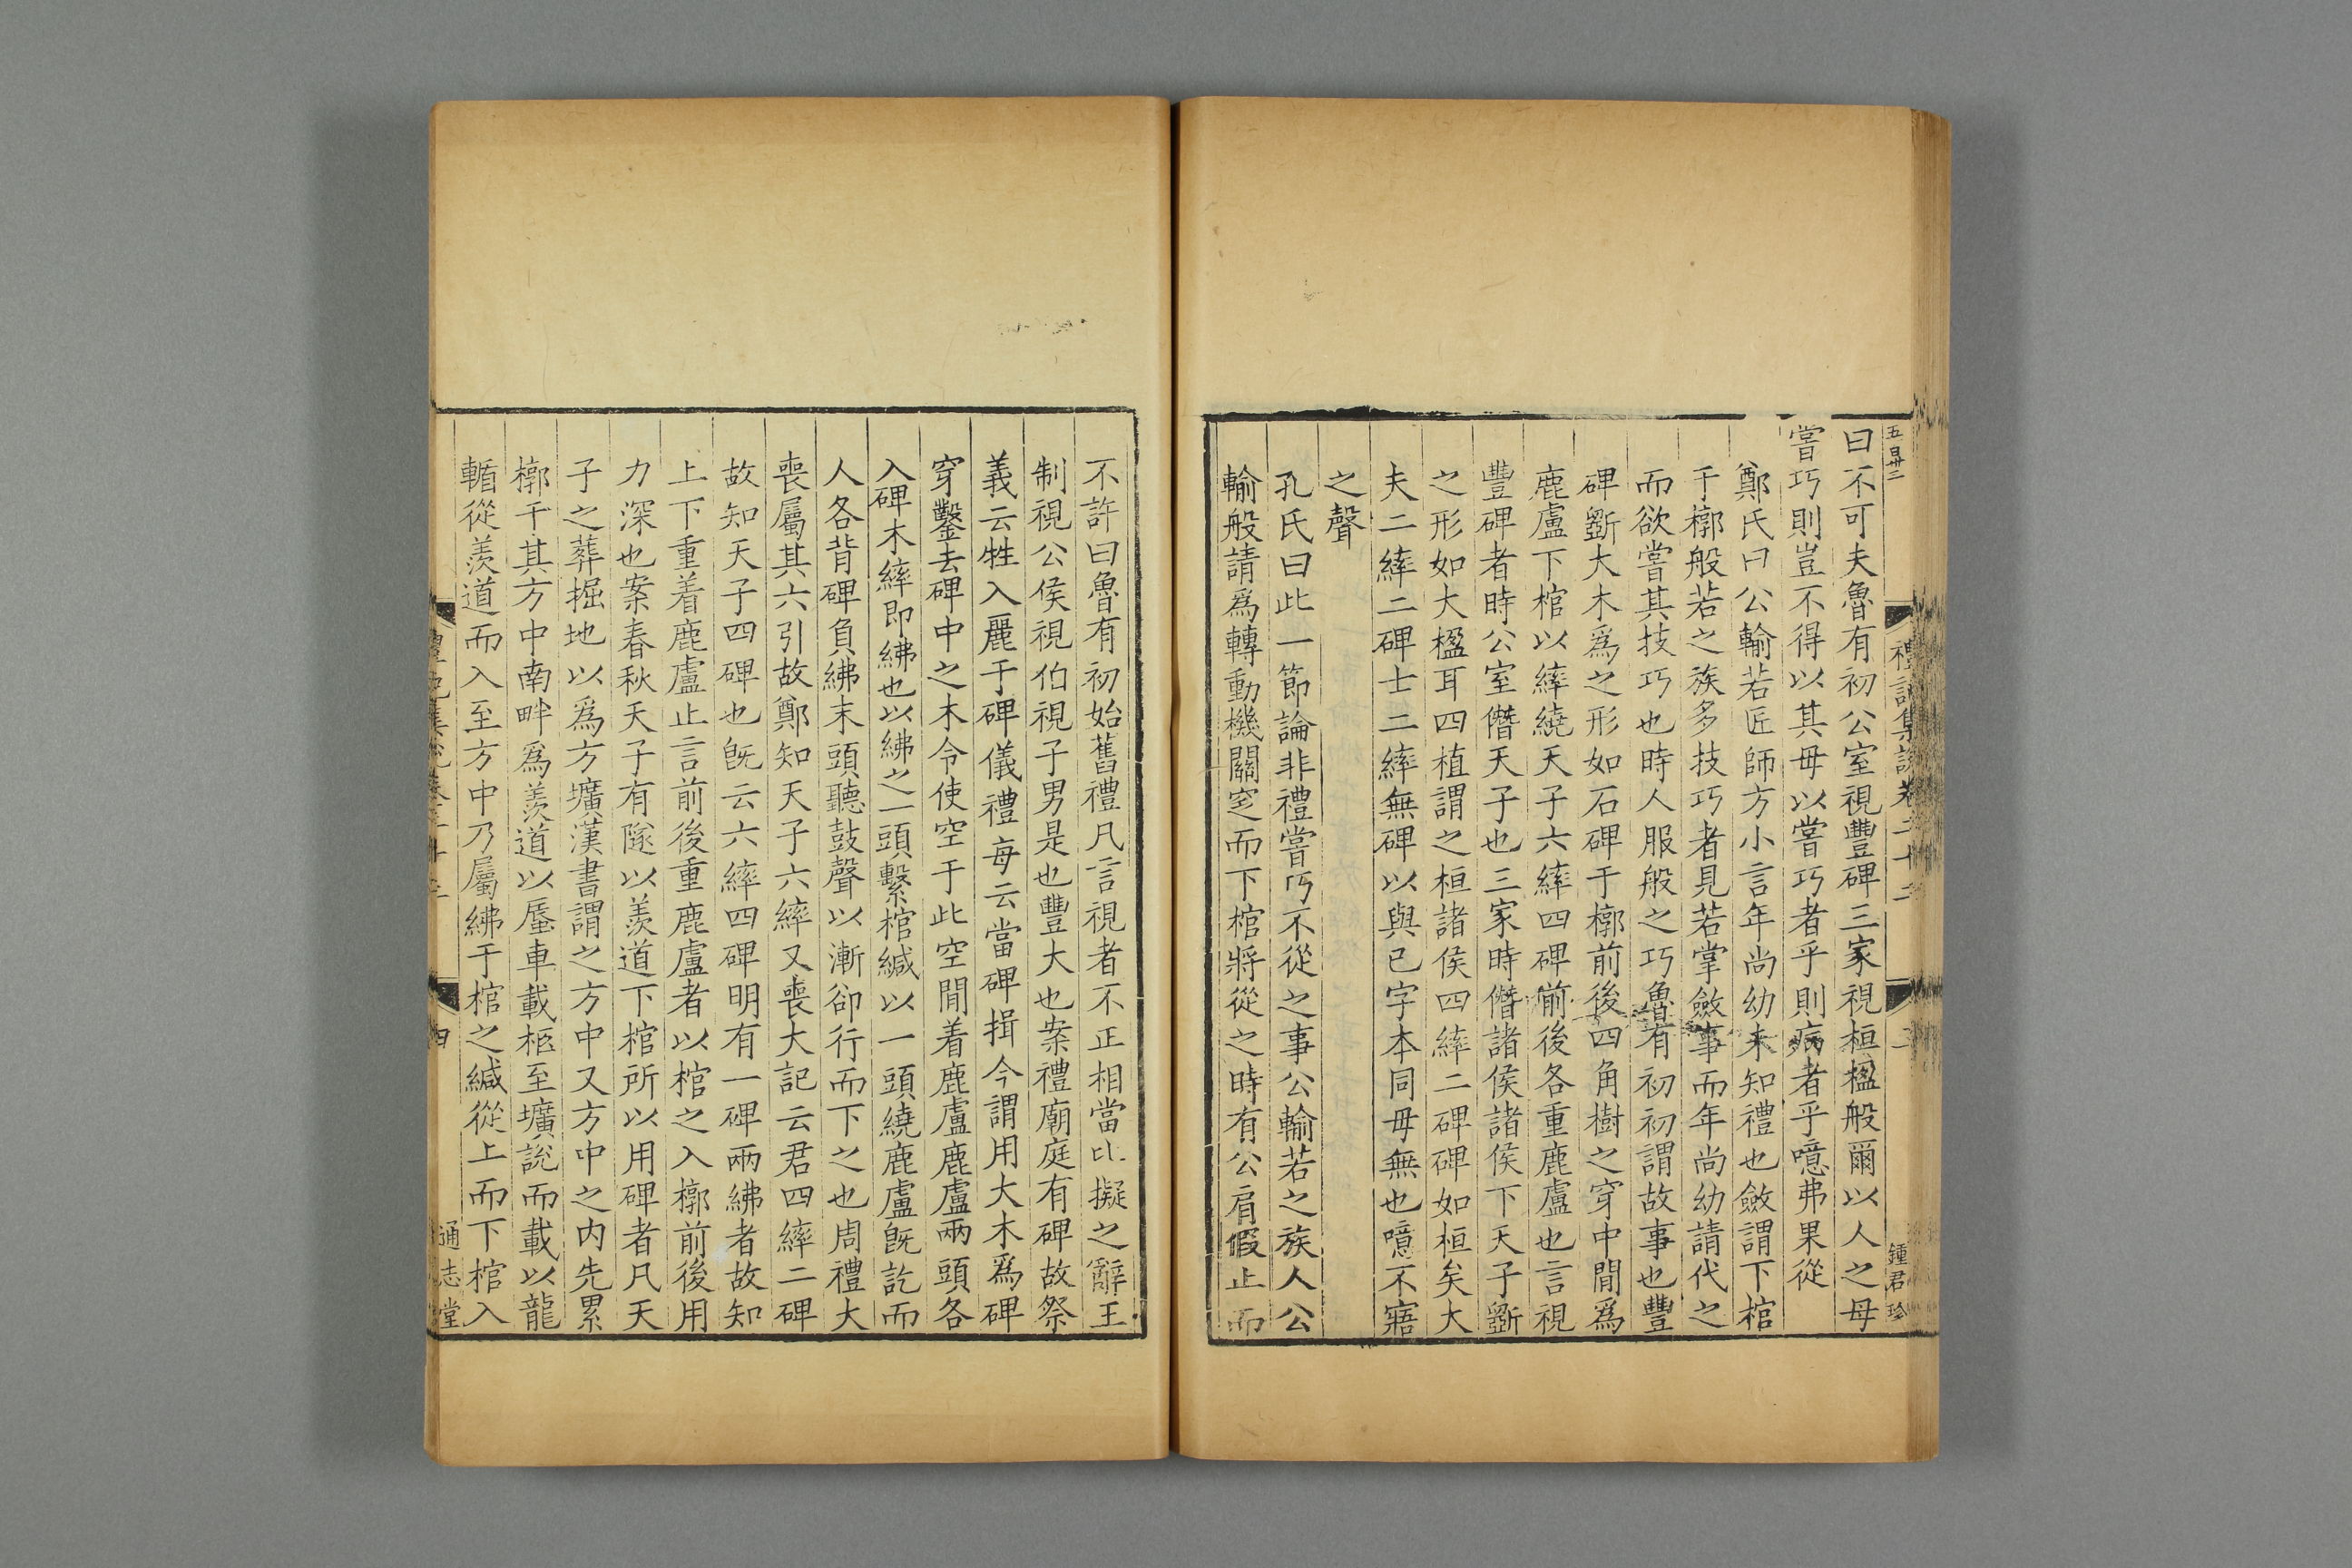 五百廿三
禮記集說卷二十二
鍾君珍
曰不可夫魯有初公室視豐碑三家視桓楹般爾以人之母
嘗巧則豈不得以其母以嘗巧者乎則病者乎噫弗果從
鄭氏曰公輸若匠師方小言年尚幼未知禮也斂謂下棺
于槨般若之族多技巧者見若掌斂事而年尚幼請代之
而欲嘗其技巧也時人服般之巧魯有初初謂故事也豐
碑斲大木爲之形如石碑于槨前後四角樹之穿中閒爲
鹿盧下棺以繂繞天子六繂四碑前後各重鹿盧也言視
豐碑者時公室僭天子也三家時僭諸侯諸侯下天子斲
之形如大楹耳四植謂之桓諸侯四繂二碑碑如桓矣大
夫二繂二碑士二繂無碑以與已字本同毋無也噫不寤
之聲
孔氏曰此一節論非禮嘗巧不從之事公輸若之族人公
輸般請爲轉動機關窆而下棺將從之時有公肩假止而
不許曰魯有初始舊禮凡言視者不正相當比擬之辭王
制視公侯視伯視子男是也豐大也案禮廟庭有碑故祭
義云牲入麗于碑儀禮每云當碑揖今謂用大木爲碑
穿鑿去碑中之木令使空于此空閒着鹿盧鹿盧兩頭各
入碑木繂即紼也以紼之一頭繫棺緘以一頭繞鹿盧旣訖而
人各背碑負紼末頭聽鼓聲以漸卻行而下之也周禮大
喪屬其六引故鄭知天子六繂又喪大記云君四繂二碑
故知天子四碑也旣云六繂四碑明有一碑兩紼者故知
上下重着鹿盧止言前後重鹿盧者以棺之入槨前後用
力深也案春秋天子有隧以羨道下棺所以用碑者凡天
子之葬掘地以爲方壙漢書謂之方中又方中之内先累
槨于其方中南畔爲羨道以蜃車載柩至壙說而載以龍
輴從羨道而入至方中乃屬紼于棺之緘從上而下棺入
四
通志堂